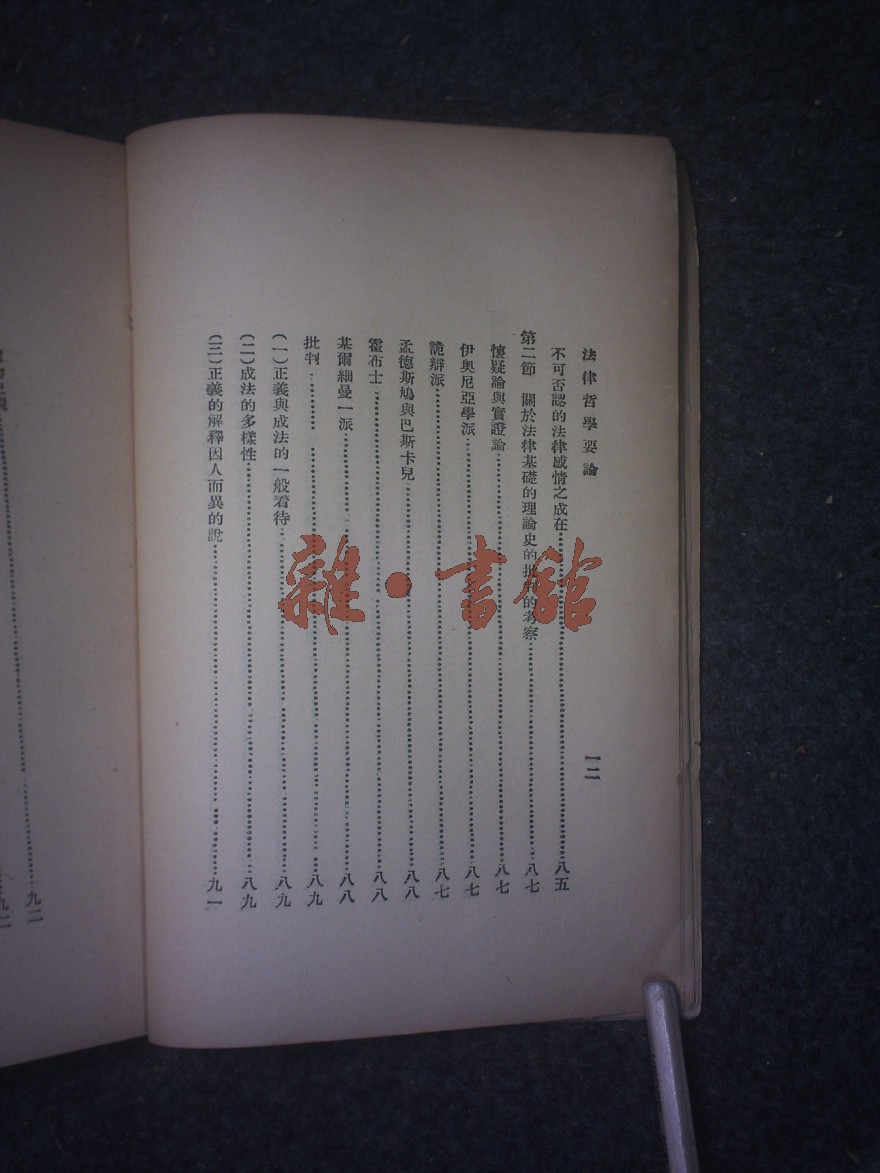 法律哲學要論
一二
不可否認的法律感情之成在……八五
第二節 關於法律基礎的理論史的批判的考察……八七
懷疑論與實證論……八七
伊奧尼亞學派……八七
詭辯派……八七
孟德斯鳩與巴斯卡兒……八八
霍布士……八八
基爾細曼一派……八八
批判……八九
(一)正義與成法的一般看待……八九
(二)成法的多樣性……八九
(三)正義的解釋因人而異的說……九一
九二
九二
雜·書館